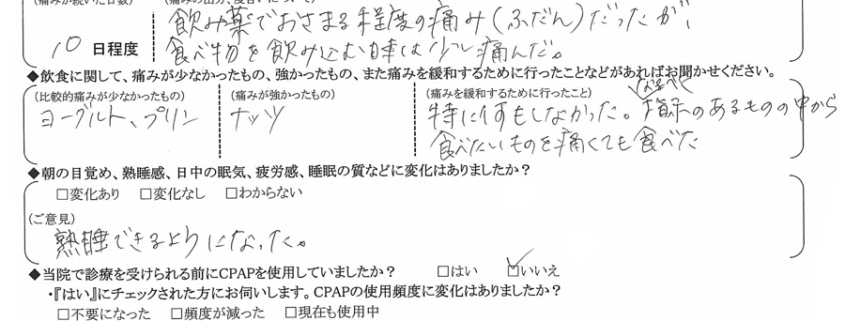 (痛みが続いた日数) (痛みの出方、度合いについて)
10 日程度
飲み薬でおさまる程度の痛み(ふだん)だったが、
食べ物を飲み込む時は少し痛んだ。
◆飲食に関して、痛みが少なかったもの、強かったもの、また痛みを緩和するために行ったことなどがあればお聞かせください。
(比較的痛みが少なかったもの) (痛みが強かったもの) (痛みを緩和するために行ったこと)
ヨーグルト、プリン ナッツ
なるべく
特に何もしなかった。指示のあるものの中から
食べたいものを痛くても食べた
◆朝の目覚め、熟睡感、日中の眠気、疲労感、睡眠の質などに変化はありましたか?
□変化あり □変化なし □わからない
(ご意見)
熟睡できるようになった。
◆当院で診療を受けられる前にCPAPを使用していましたか? □はい ☑いいえ
・『はい』にチェックされた方にお伺いします。CPAPの使用頻度に変化はありましたか?
□不要になった □頻度が減った □現在も使用中